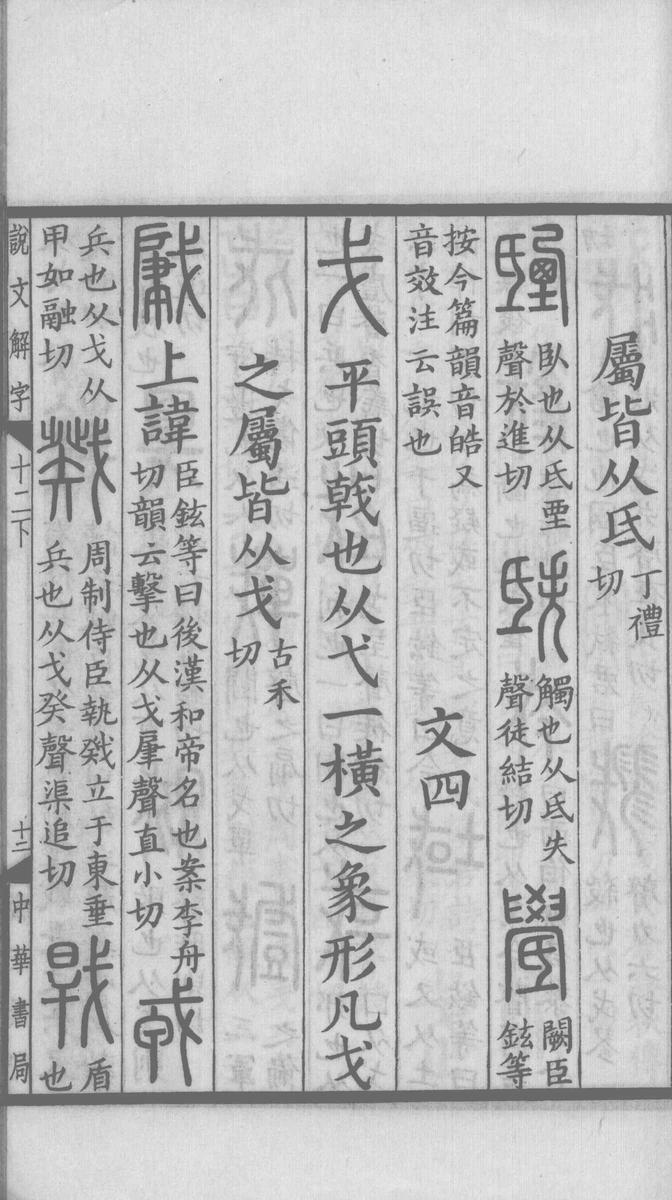 屬皆从氐丁禮切
臥也从氐垔聲於進切 觸也从氐失聲徒結切 闕臣鉉等
按今篇韻音皓又音效注云誤也 文四
戈 平頭戟也从弋一橫之象形凡戈
之屬皆从戈古禾切
肈 上諱臣鉉等曰後漢和帝名也案李舟切韻云擊也从戈肁聲直小切 戎
兵也从戈从甲如融切 戣 周制侍臣執戣立于東垂兵也从戈癸聲渠追切 盾也
說文解字 十二下 十二 中華書局